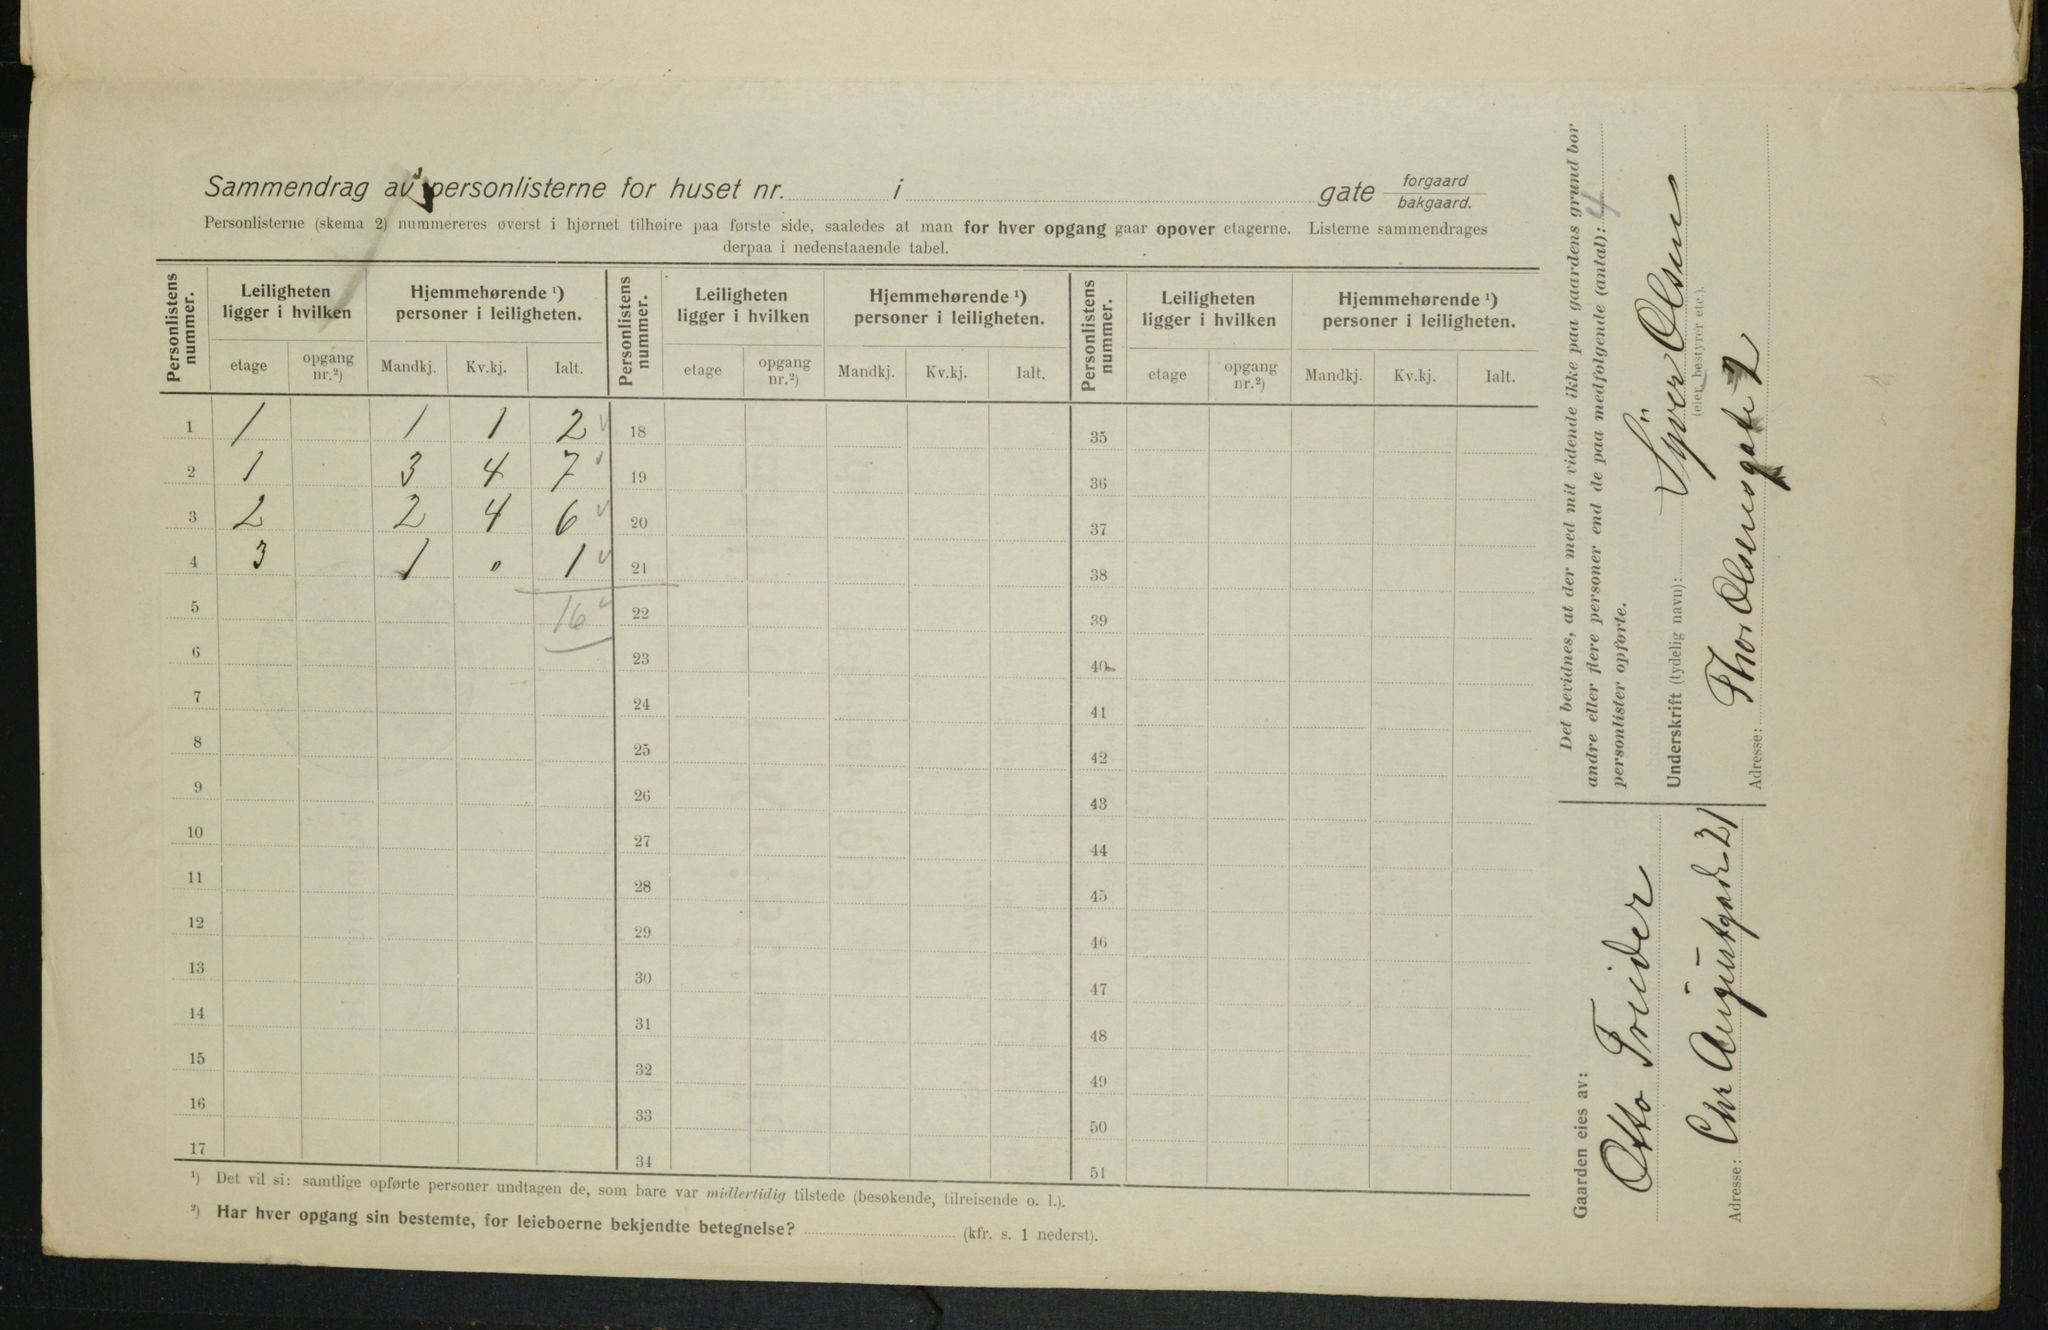 Sammendrag av personlisterne for huset nr. i gate forgaard bakgaard.
Personlisterne (skema 2) nummereres øverst i hjørnet tilhøire paa første side, saaledes at man for hver opgang gaar opover etagerne. Listerne sammendrages
derpaa i nedenstaaende tabel.
Personlistens nummer. Leiligheten ligger i hvilken Hjemmehørende ¹) personer i leiligheten. Personlistens nummer. Leiligheten ligger i hvilken Hjemmehørende ¹) personer i leiligheten. Personlistens nummer. Leiligheten ligger i hvilken Hjemmehørende ¹) personer i leiligheten.
etage opgang nr.²) Mandkj. Kv.kj. Ialt. etage opgang nr.²) Mandkj. Kv.kj. Ialt. etage opgang nr.²) Mandkj. Kv.kj. Ialt.
1 1 1 1 2 18 35
2 1 3 4 7 19 36
3 2 2 4 6 20 37
4 3 1 0 1 21 38
5 16 22 39
6 23 40
7 24 41
8 25 42
9 26 43
10 27 44
11 28 45
12 29 46
13 30 47
14 31 48
15 32 49
16 33 50
17 34 51
¹) Det vil si: samtlige opførte personer undtagen de, som bare var midlertidig tilstede (besøkende, tilreisende o. l.).
²) Har hver opgang sin bestemte, for leieboerne bekjendte betegnelse? (kfr. s. 1 nederst).
Det bevidnes, at der med mit vidende ikke paa gaardens grund bor
andre eller flere personer end de paa medfølgende (antal): 4
personlister opførte.
Underskrift (tydelig navn): Syver Olsen
(eier, bestyrer etc.).
Adresse: Thor Olsensgate 2
Gaarden eies av:
Otto Treider
Adresse: Chr Augustgade 21